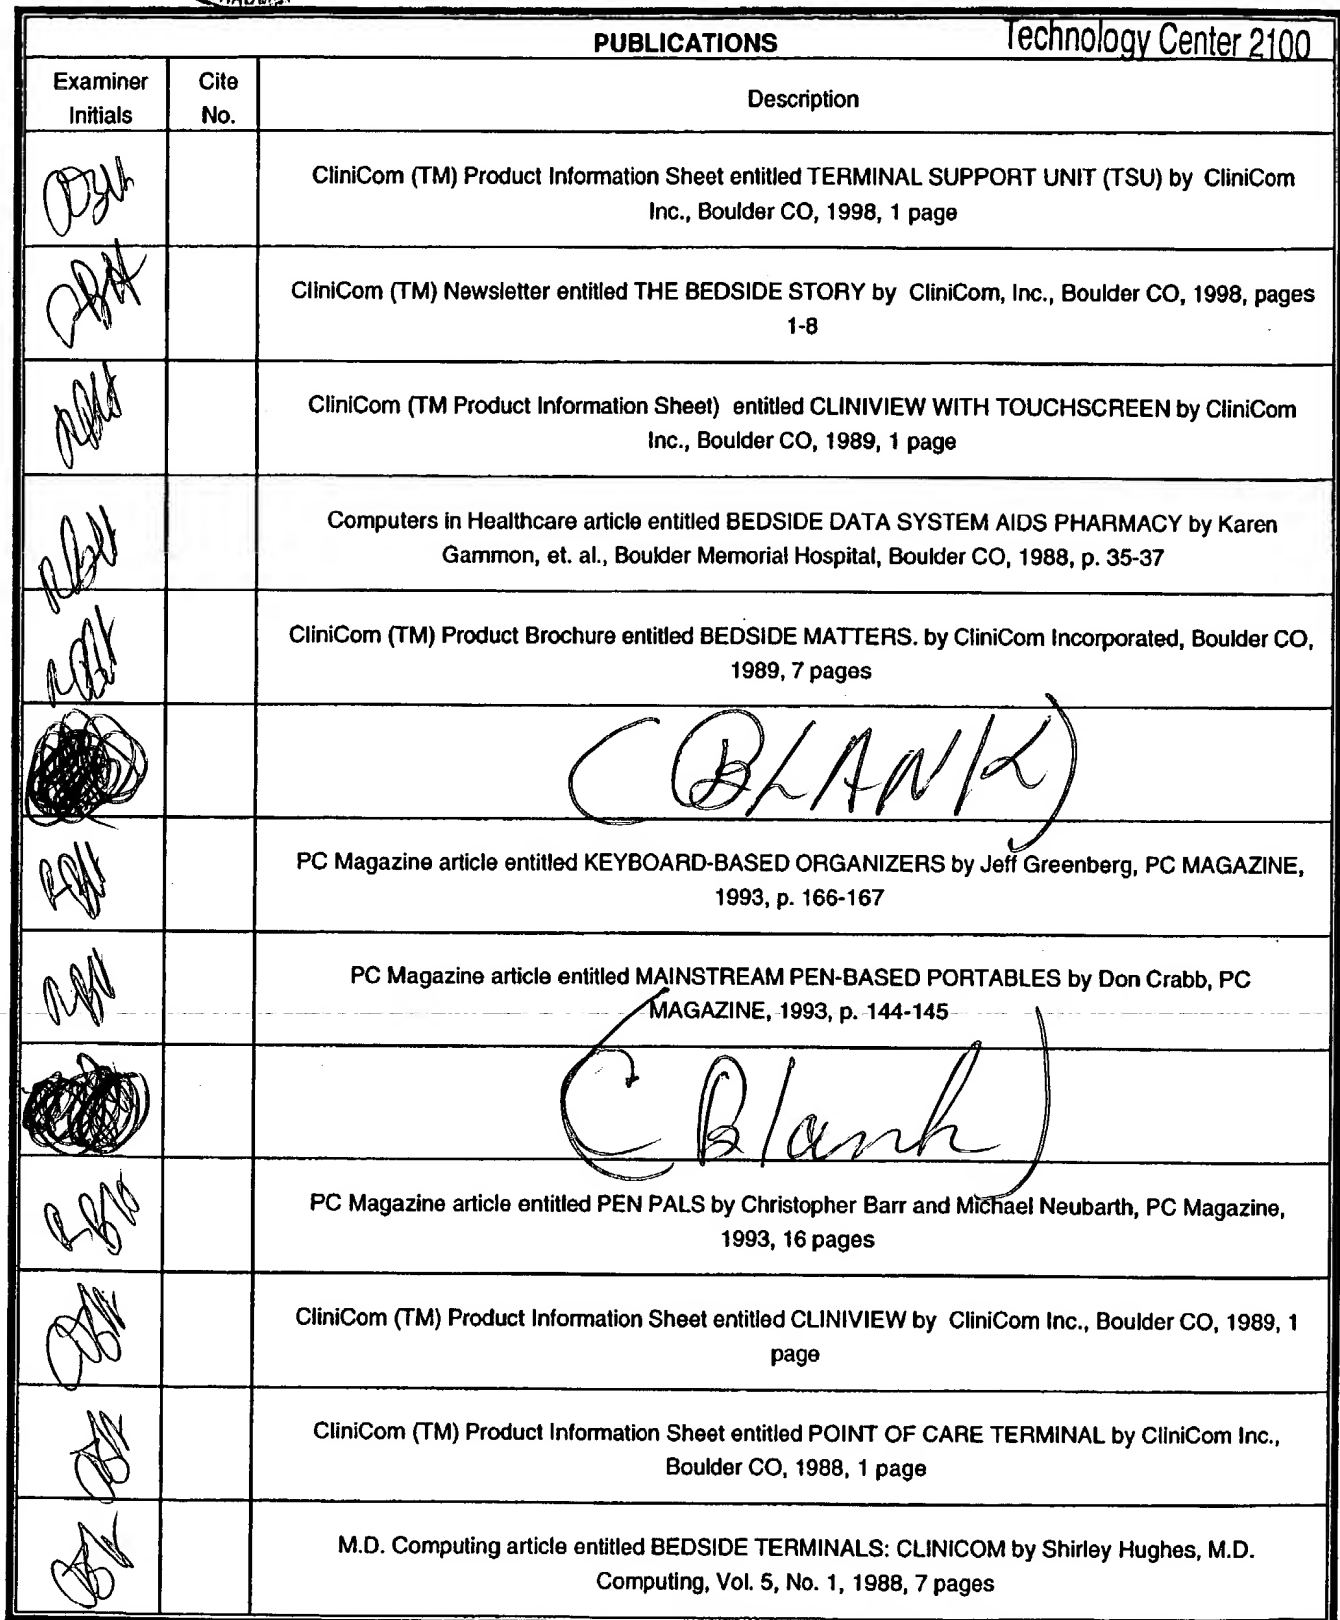 PUBLICATIONS
Technology Center 2100
Examiner
Initials
Cite
No.
Description
CliniCom (TM) Product Information Sheet entitled TERMINAL SUPPORT UNIT (TSU) by CliniCom
Inc., Boulder CO, 1998, 1 page
CliniCom (TM) Newsletter entitled THE BEDSIDE STORY by CliniCom, Inc., Boulder CO, 1998, pages
1-8
CliniCom (TM Product Information Sheet) entitled CLINIVIEW WITH TOUCHSCREEN by CliniCom
Inc., Boulder CO, 1989, 1 page
Computers in Healthcare article entitled BEDSIDE DATA SYSTEM AIDS PHARMACY by Karen
Gammon, et. al., Boulder Memorial Hospital, Boulder CO, 1988, p. 35-37
CliniCom (TM) Product Brochure entitled BEDSIDE MATTERS. by CliniCom Incorporated, Boulder CO,
1989, 7 pages
(BLANK)
PC Magazine article entitled KEYBOARD-BASED ORGANIZERS by Jeff Greenberg, PC MAGAZINE,
1993, p. 166-167
PC Magazine article entitled MAINSTREAM PEN-BASED PORTABLES by Don Crabb, PC
MAGAZINE, 1993, p. 144-145
(Blank)
PC Magazine article entitled PEN PALS by Christopher Barr and Michael Neubarth, PC Magazine,
1993, 16 pages
CliniCom (TM) Product Information Sheet entitled CLINIVIEW by CliniCom Inc., Boulder CO, 1989, 1
page
CliniCom (TM) Product Information Sheet entitled POINT OF CARE TERMINAL by CliniCom Inc.,
Boulder CO, 1988, 1 page
M.D. Computing article entitled BEDSIDE TERMINALS: CLINICOM by Shirley Hughes, M.D.
Computing, Vol. 5, No. 1, 1988, 7 pages